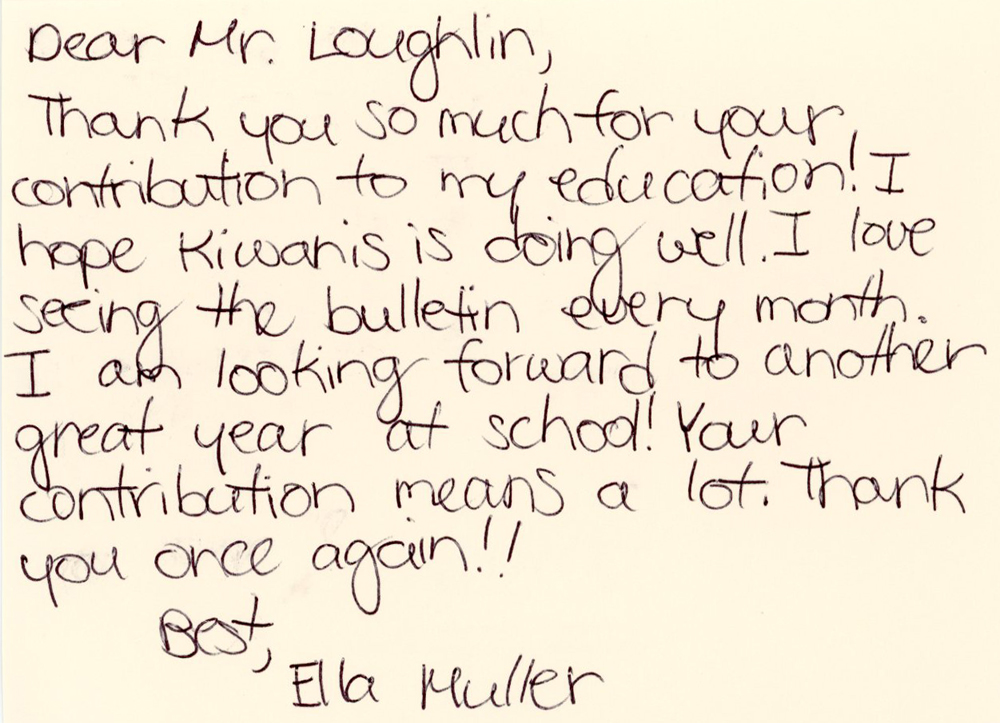 Dear Mr. Loughlin,
Thank you so much for your
contribution to my education! I
hope Kiwanis is doing well. I love
seeing the bulletin every month.
I am looking forward to another
great year at school! Your
contribution means a lot. Thank
you once again!!
Best,
Ella Muller